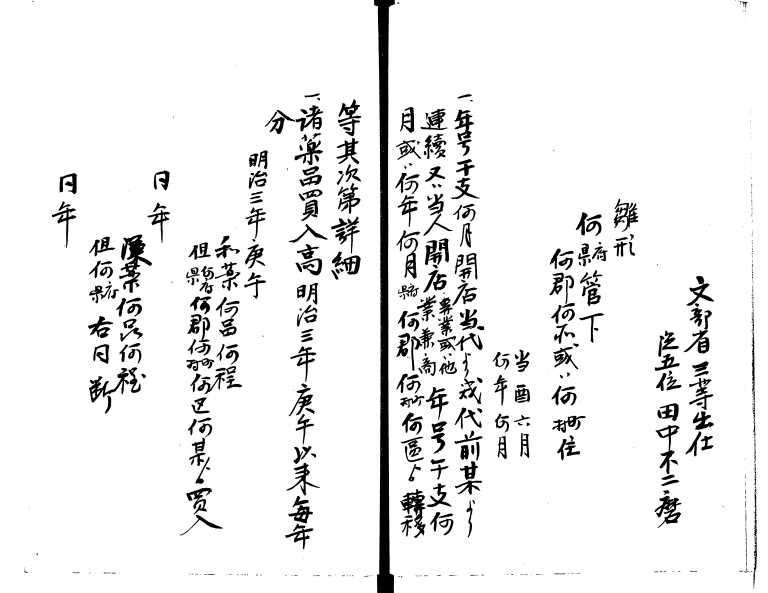 文部省三等出仕
従五位田中不二麿
雛形
何府県管下
何郡何区或ハ何町村住
当酉六月
何年何月
一、年号干支何月開店当代ゟ幾代前某ゟ
連續又ハ当人開店専業或ハ他業兼商年号干支何
月或ハ何年何月府県何郡何町村何區ゟ轉移
等其次第詳細
一、諸薬品買入高明治三年庚午以来毎年
分
明治三年庚午
和薬何品何程
但何府何県何郡何町何村何区何某ゟ買入
同年
漢薬何品何程
但何府県右同断
同年